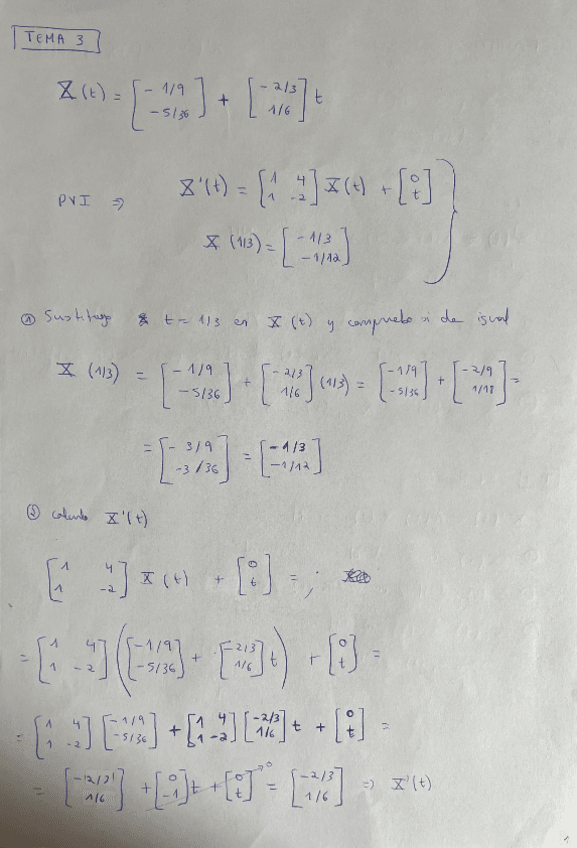 TEMA 3
X(t) = [-1/9 -5/36] + [-2/3 1/6] t
PVI ⇒ X'(t) = [1 4 1 -2] X(t) + [0 t]
X(1/3) = [-1/3 -1/12]
① Sustituyo t = 1/3 en X(t) y compruebo si da igual
X(1/3) = [-1/9 -5/36] + [-2/3 1/6] (1/3) = [-1/9 -5/36] + [-2/9 1/18] =
= [-3/9 -3/36] = [-1/3 -1/12]
② calculo X'(t)
[1 4 1 -2] X(t) + [0 t] = ;
= [1 4 1 -2] ([-1/9 -5/36] + [-2/3 1/6] t) + [0 t] =
= [1 4 1 -2] [-1/9 -5/36] + [1 4 1 -2] [-2/3 1/6] t + [0 t] =
= [-2/3 1/6] + [0 -1] t + [0 t] → 0 = [-2/3 1/6] ⇒ X'(t)
1